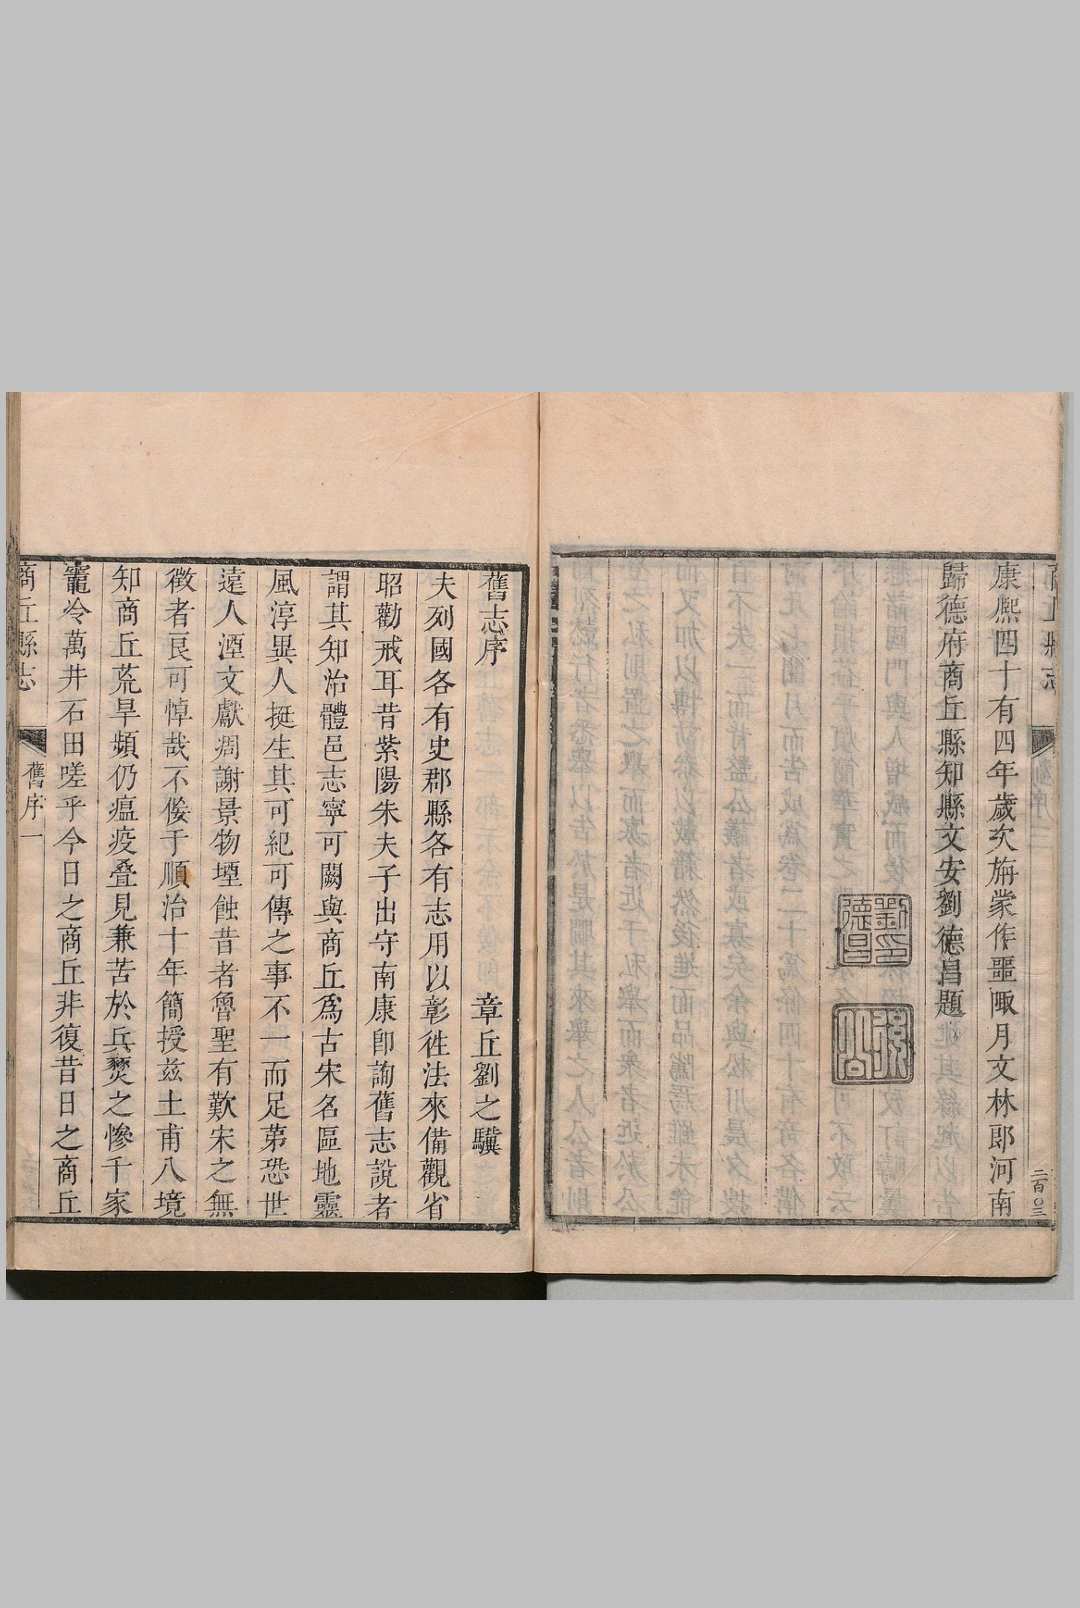 康熙四十有四年歲次旃蒙作噩陬月文林郎河南
歸德府商丘縣知縣文安劉德昌題
劉德昌印
舊志序
章丘劉之驥
夫列國各有史郡縣各有志用以彰徃法來備觀省
昭勸戒耳昔紫陽朱夫子出守南康卽詢舊志說者
謂其知治體邑志寧可闕與商丘爲古宋名區地靈
風淳異人挺生其可紀可傳之事不一而足第恐世
遠人湮文獻凋謝景物堙蝕昔者魯聖有歎宋之無
徵者良可悼哉不佞于順治十年簡授兹土甫八境
知商丘荒旱頻仍瘟疫叠見兼苦於兵燹之慘千家
竈冷萬井石田嗟乎今日之商丘非復昔日之商丘
商丘縣志
舊序
一